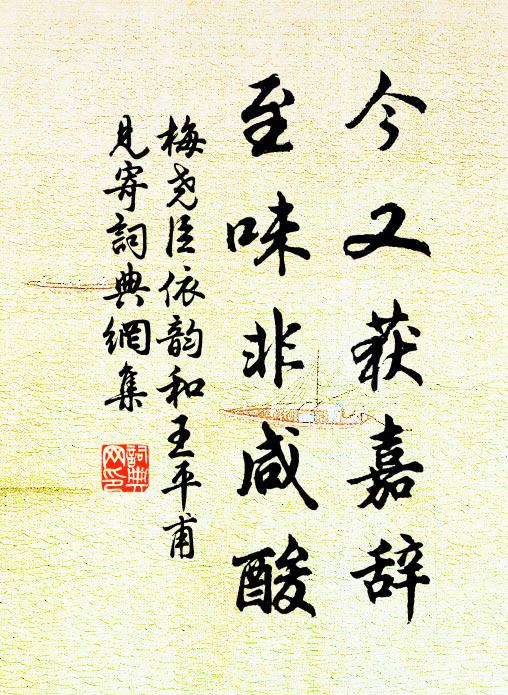 今又获嘉辞
至味非咸酸
梅尧臣依韵和王平甫
见寄詞典網集
詞典
网印